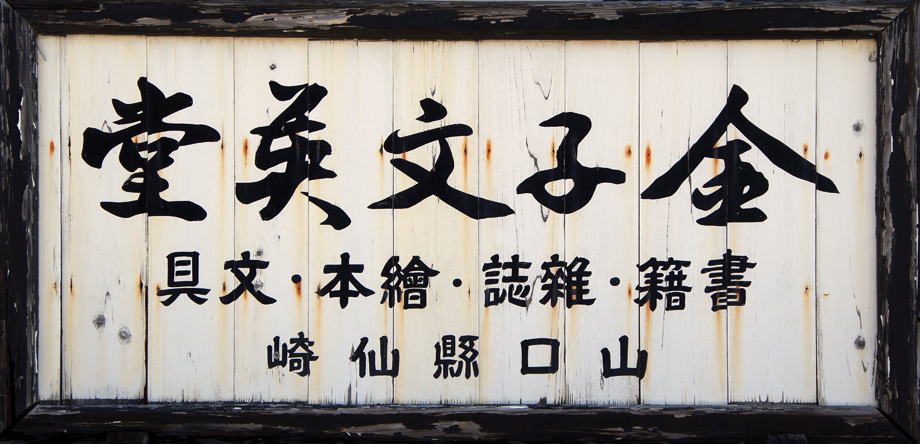 金子文英堂
書籍・雜誌・繪本・文具
山口縣仙崎